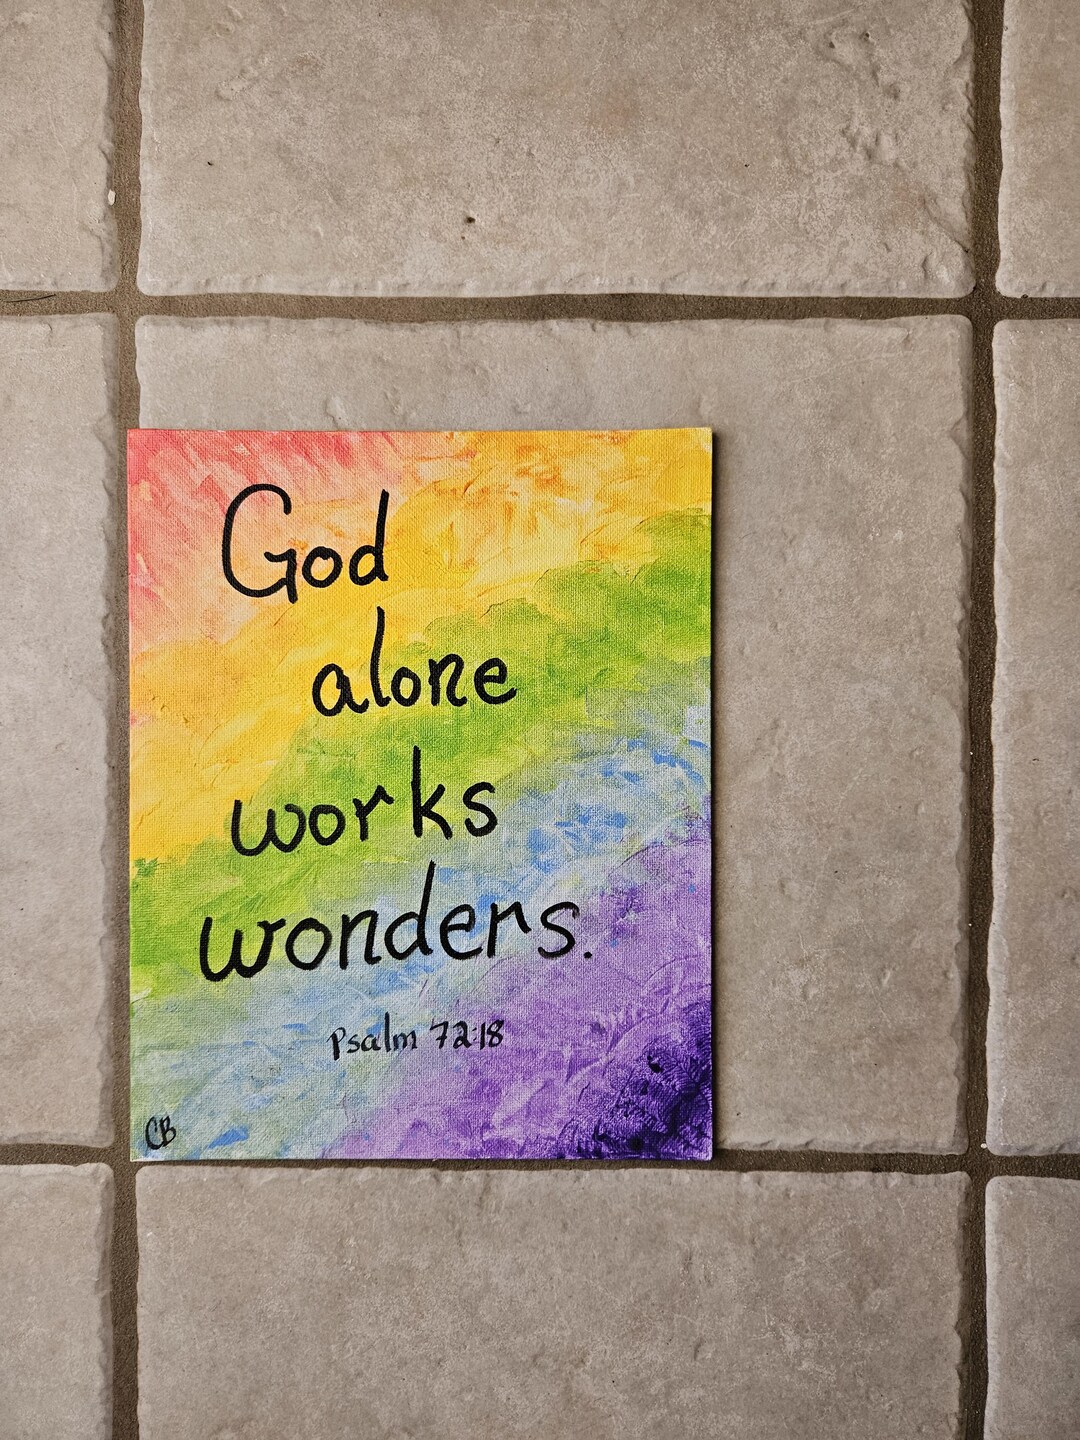 God
alone
works
wonders.
Psalm 72:18
CB